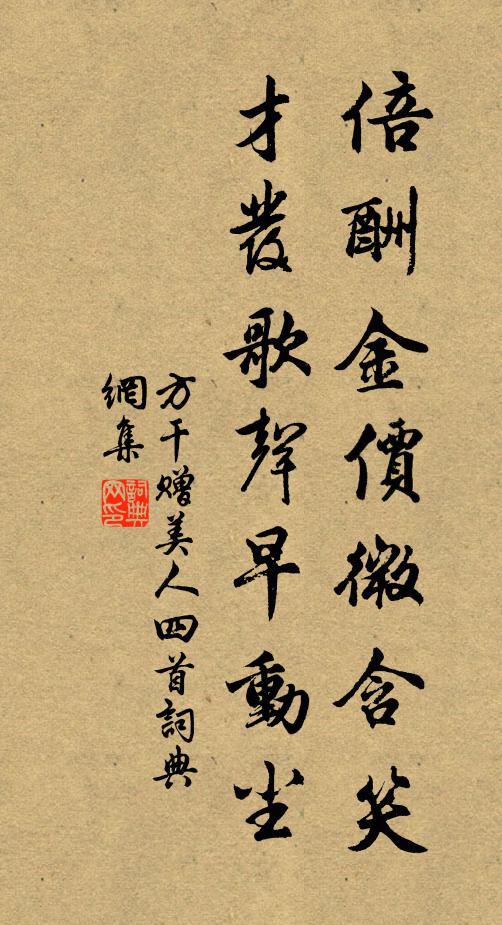 倍酬金價微含笑
才發歌聲早動尘
方干赠美人四首詞典
網集
詞典網印